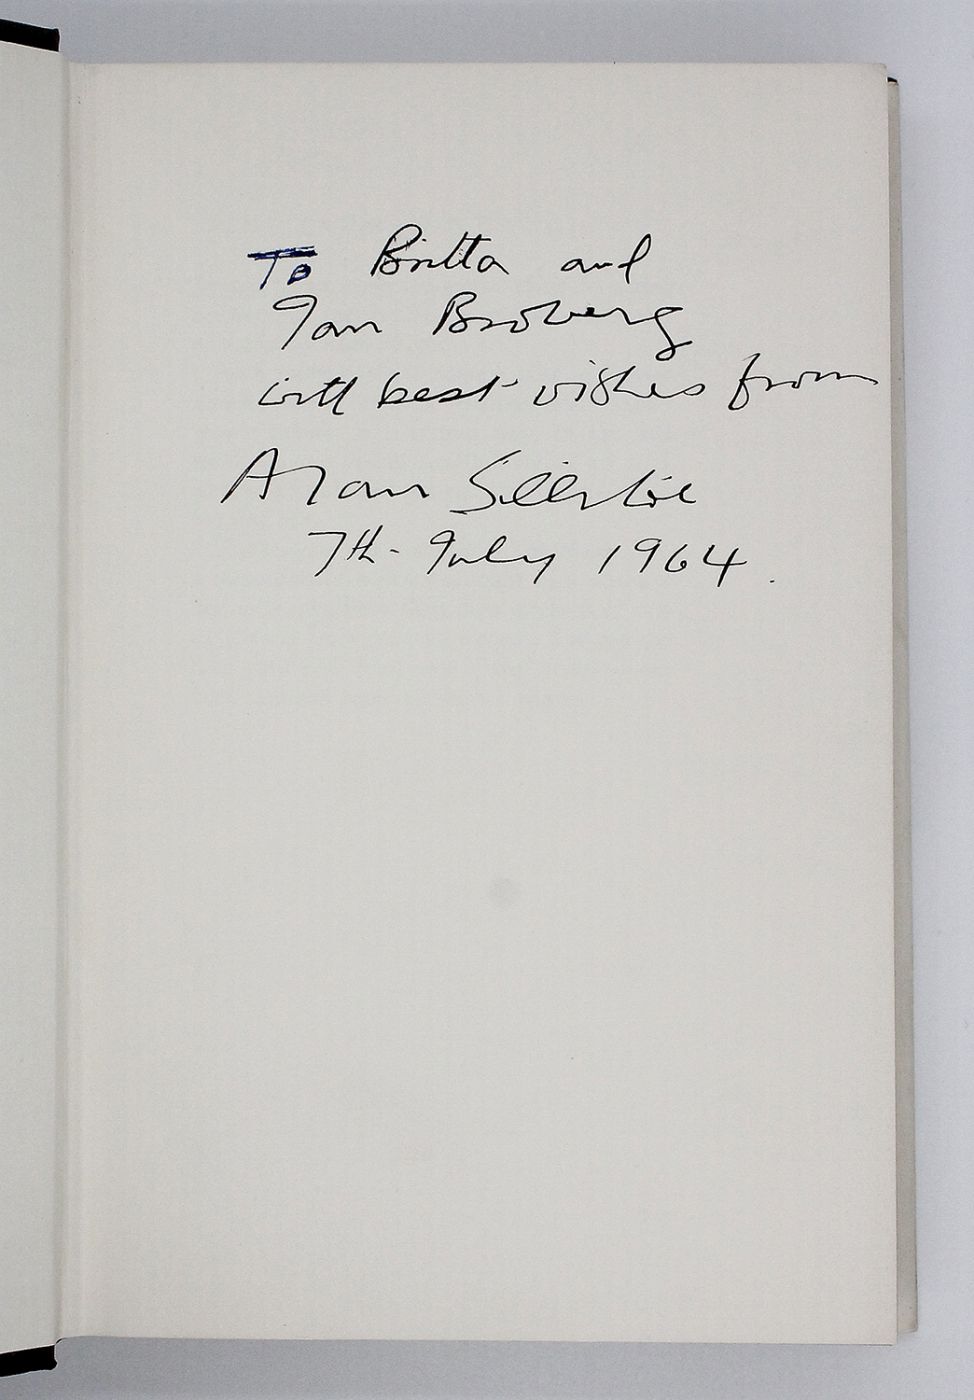 To Britta and
Jan Broberg
with best wishes from
Alan Sillitoe
7th. July 1964.